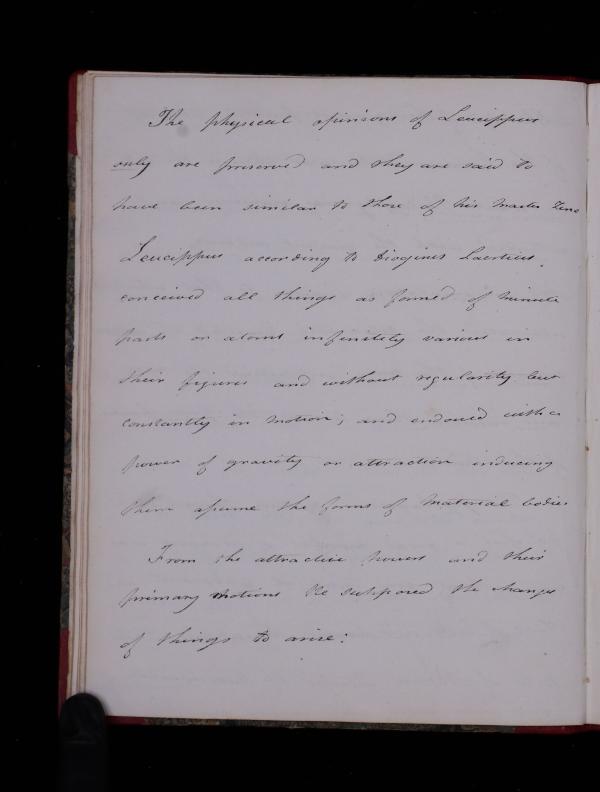 The physical opinions of Leucippus
only are preserved and they are said to
have been similar to those of his master Zeno
Leucippus according to Diogines Laertius
conceived all things as formed of minute
parts or atoms infinitely various in
their figures and without regularity but
constantly in motion; and endowed with a
power of gravity or attraction inducing
them assume the forms of material bodies
From the attractive powers and their
primary motions he supposed the changes
of things to arise: